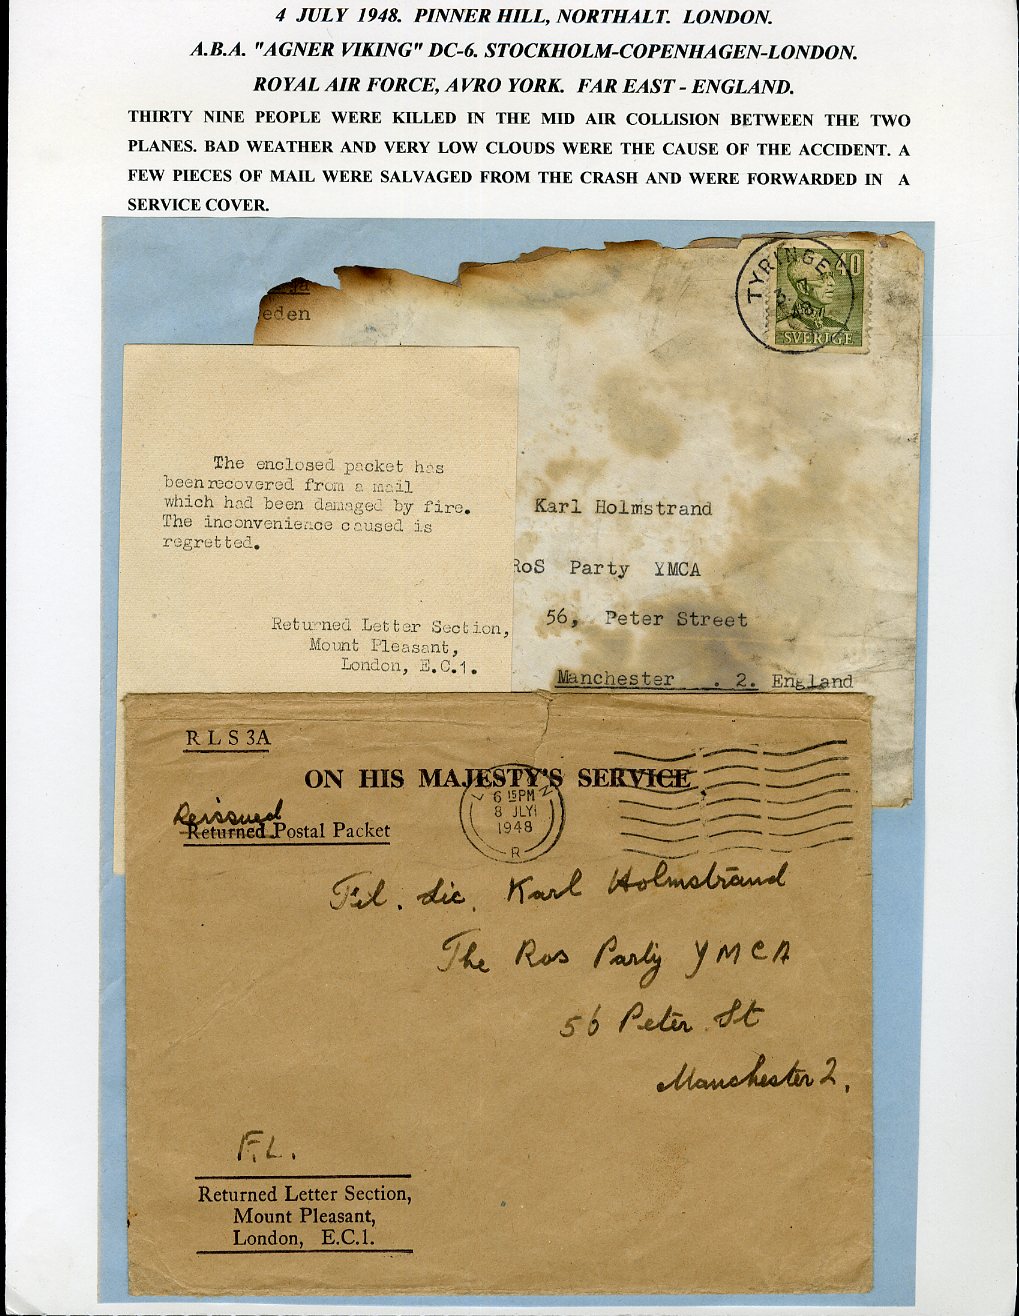 4 JULY 1948. PINNER HILL, NORTHALT. LONDON.
A.B.A. "AGNER VIKING" DC-6. STOCKHOLM-COPENHAGEN-LONDON.
ROYAL AIR FORCE, AVRO YORK. FAR EAST - ENGLAND.
THIRTY NINE PEOPLE WERE KILLED IN THE MID AIR COLLISION BETWEEN THE TWO
PLANES. BAD WEATHER AND VERY LOW CLOUDS WERE THE CAUSE OF THE ACCIDENT. A
FEW PIECES OF MAIL WERE SALVAGED FROM THE CRASH AND WERE FORWARDED IN A
SERVICE COVER.
eden
TYRINGE
3. 7
48
40
SVERIGE
The enclosed packet has
been recovered from a mail
which had been damaged by fire.
The inconvenience caused is
regretted.
Returned Letter Section,
Mount Pleasant,
London, E.C.1.
Karl Holmstrand
RoS Party YMCA
56, Peter Street
Manchester . 2. England
R L S 3A
ON HIS MAJESTY'S SERVICE
Reissued
Returned Postal Packet
6 15PM
8 JLY
1948
R
Fil. Lic. Karl Holmstrand
The Ros Party YMCA
56 Peter St
Manchester 2.
F.L.
Returned Letter Section,
Mount Pleasant,
London, E.C.1.